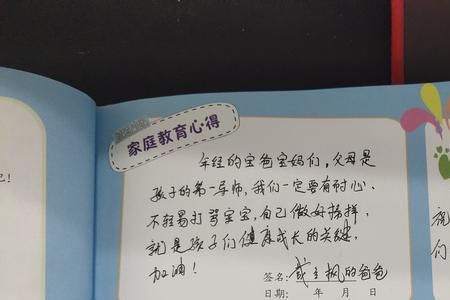 家庭教育心得
年轻的宝爸宝妈们，父母是
孩子的第一导师，我们一定要有耐心。
不轻易打骂宝宝，自己做好榜样，
就是孩子们健康成长的关键，
加油！
签名：
枫的爸爸
日期： 年 月 日
们